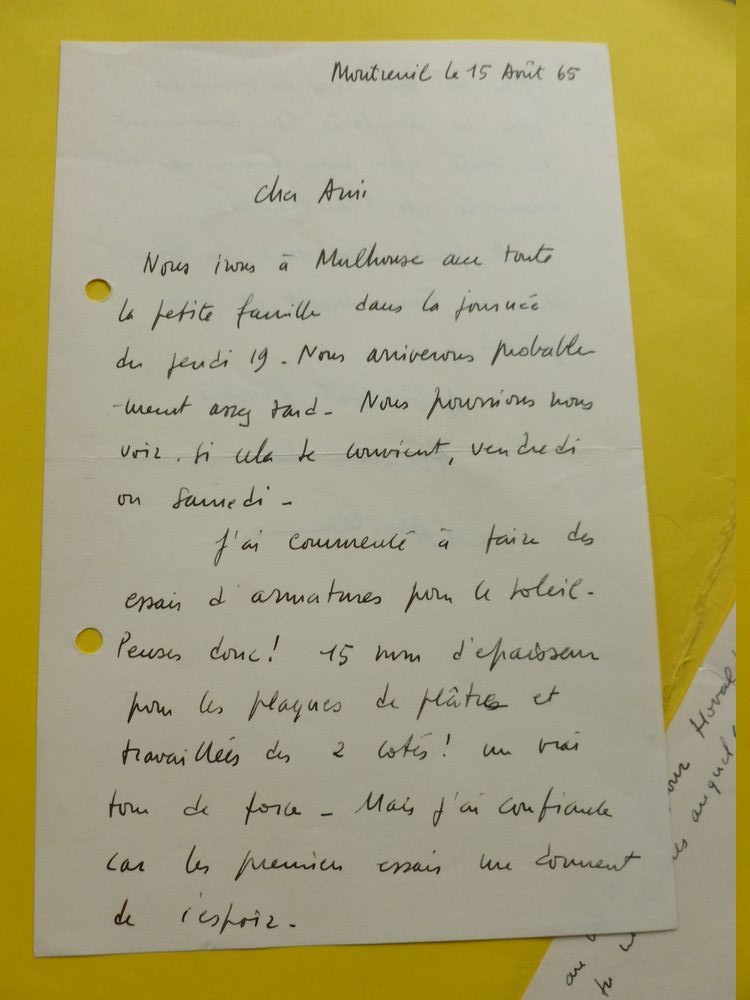 Montreuil le 15 Août 65
Cher Ami
Nous irons à Mulhouse avec toute
la petite famille dans la journée
du jeudi 19. Nous arriverons probable
-ment assez tard. Nous pourrions nous
voir. Si cela te convient, vendredi
ou samedi -
J'ai commencé à faire des
essais d'armatures pour le soleil.
Penses donc! 15 mm d'epaisseur
pour les plaques de plâtres et
travaillées des 2 cotés! un vrai
tour de force - Mais j'ai confiance
car les premiers essais me donnent
de l'espoir.
pour Hoval
auquel